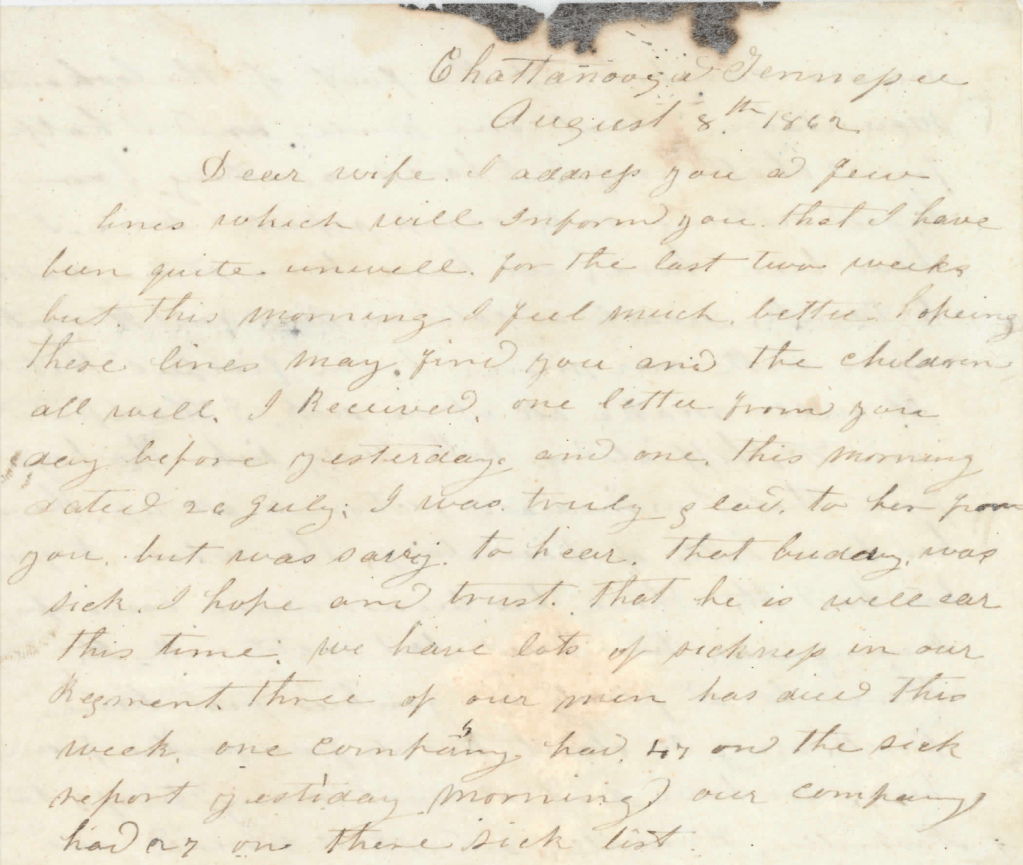 Chattanooga Tennessee
August 8th 1862
Dear wife. I address you a few
lines which will Inform you. that I have
bin quite unwell. for the last two weeks
but. this morning I feel much. better. hopeing
these lines may find you and the children
all well. I Received. one letter from you
day before yesterday. and one. this morning
dated 20 July; I was. truly glad. to her from
you. but was sarry. to hear. that buddy. was
sick. I hope and trust. that he is well ear
this time. we have lots of sickness in our
Regment. three of our men has died this
week. one company had. 47 on the sick
report yestiday morning our company
had 27 on there sick list.